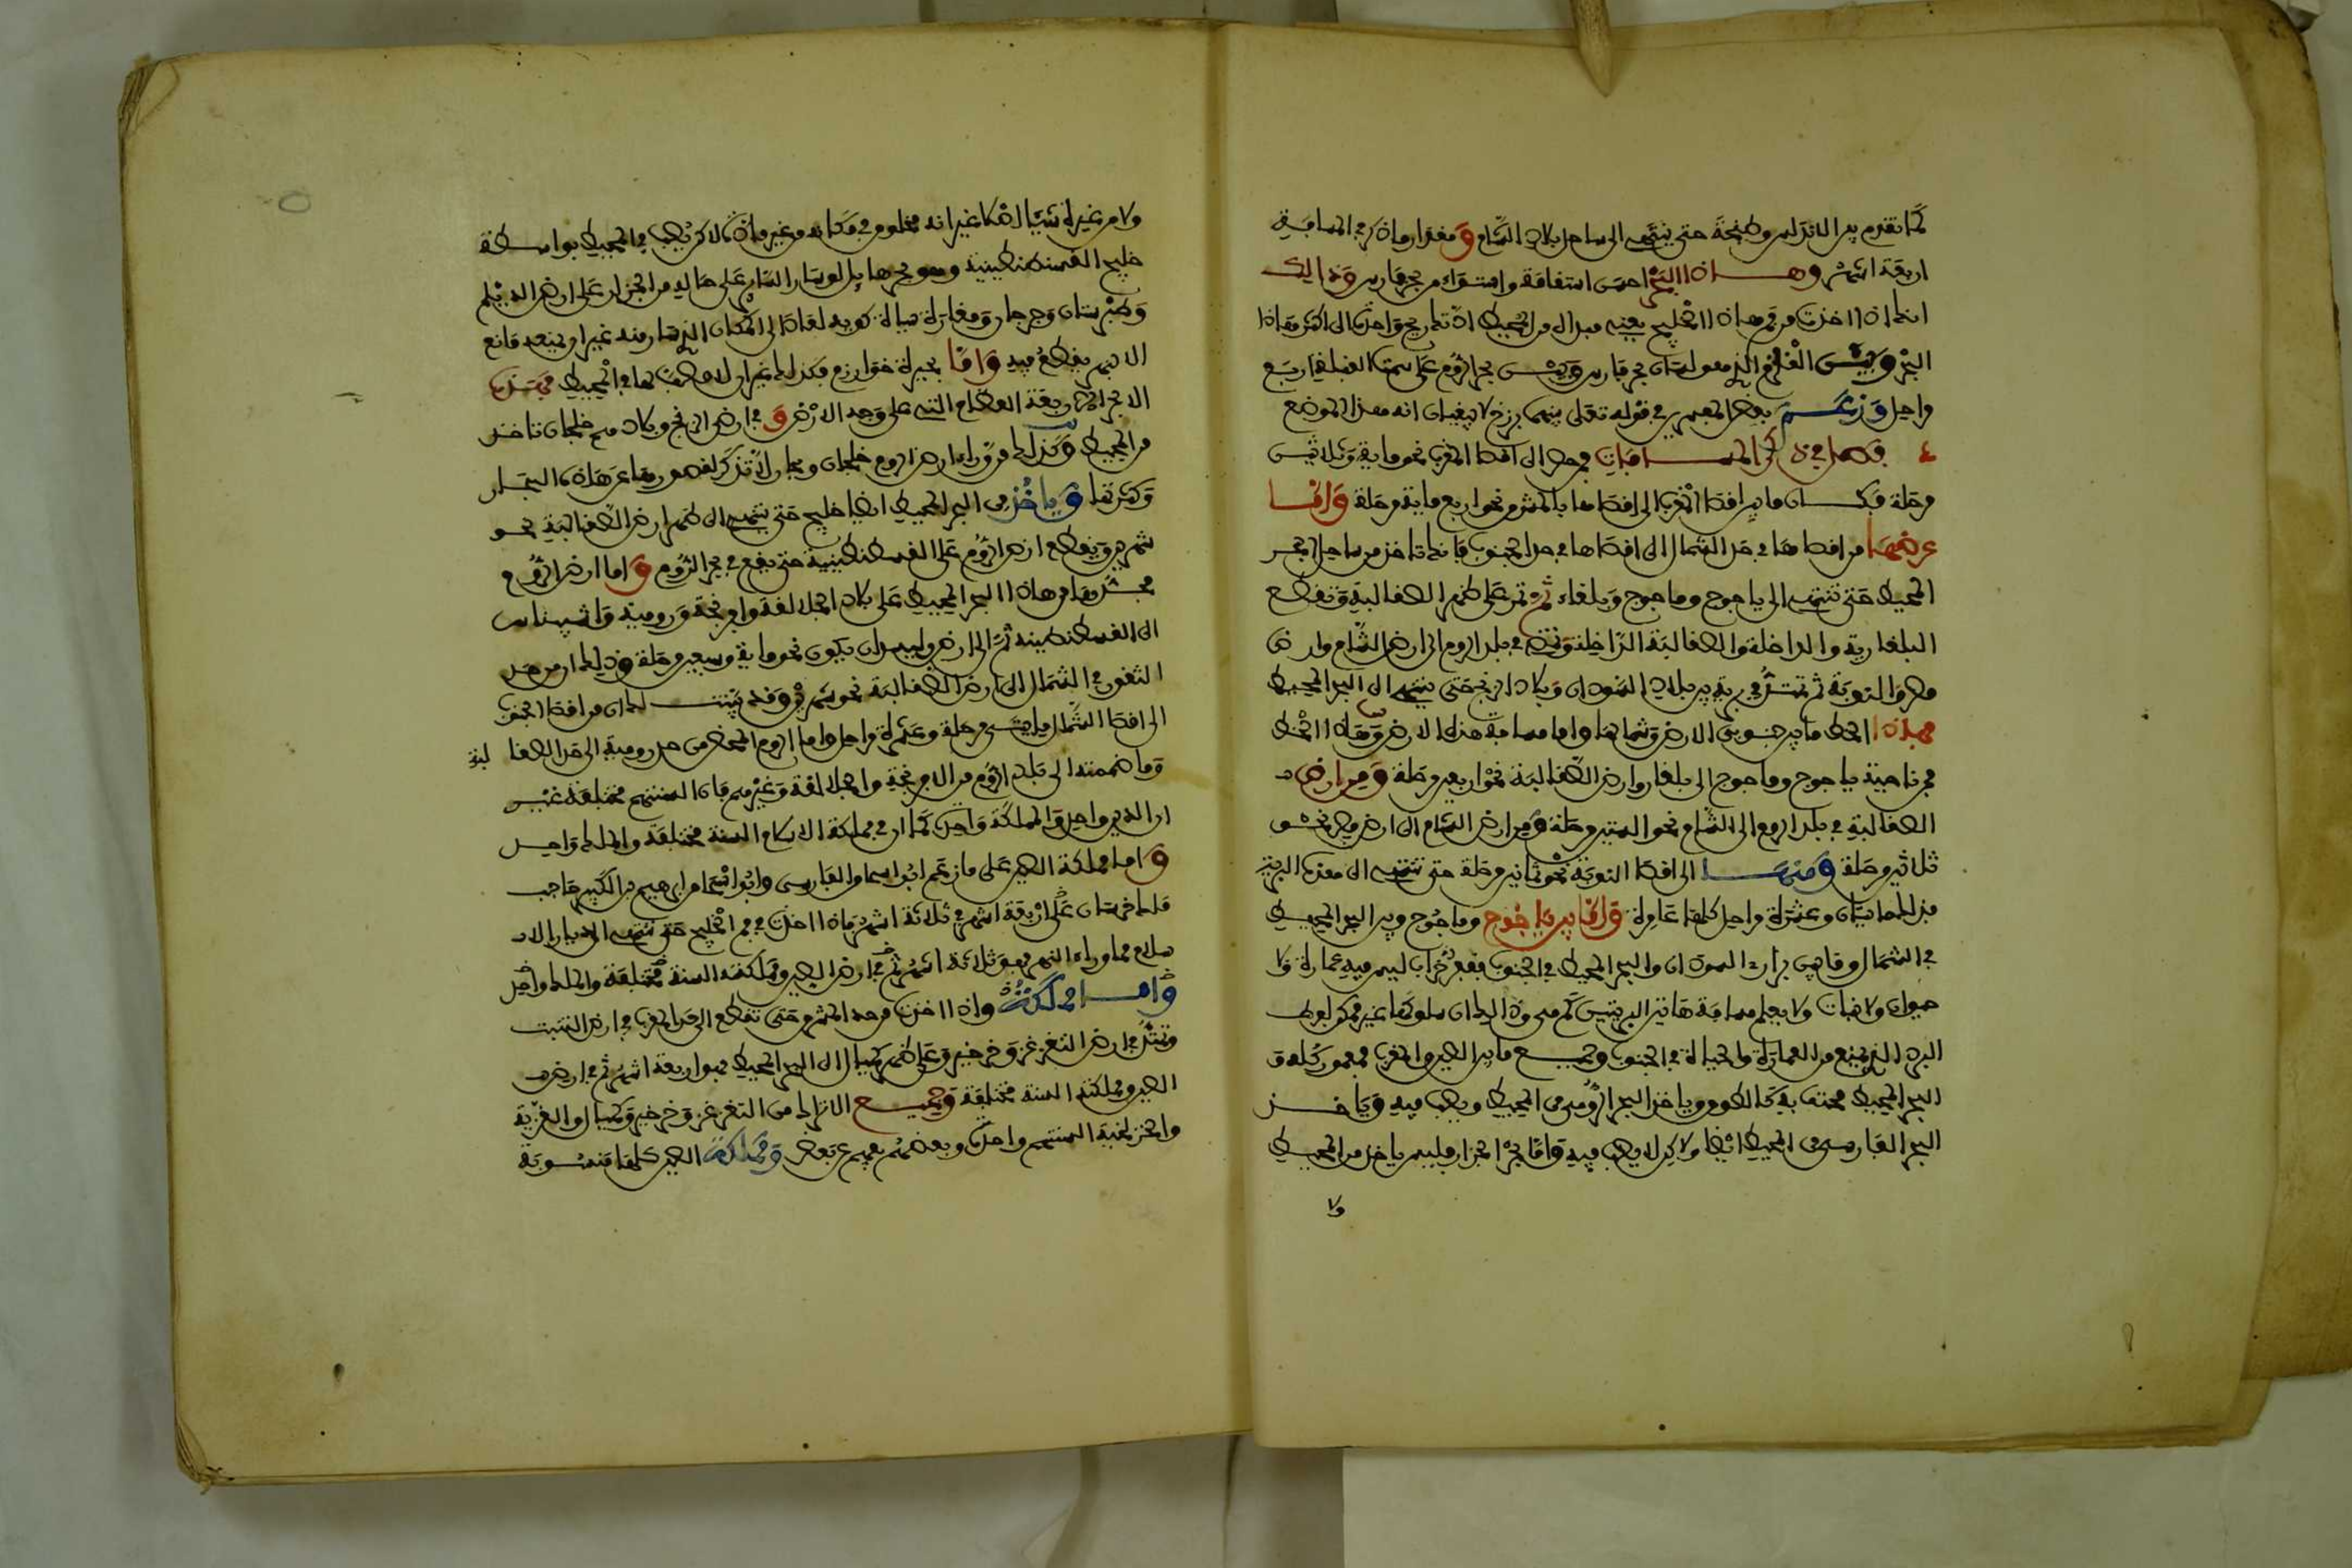 كما تقدم بين الاندلس وطنجة حتى ينتهي الى ساحل بلاد الشام ومقدار ماذكر في المسافة
اربعة اشهر وهاذا البحر احسن استقامة واستواء من بحر فارس وذالك
انك اذا اخذت من فم هاذا الخليج يعني مبداه من المحيط ادتك ريح واحدة الى اكثر هاذا
البحر وبين القلزم الذي هو لسان بحر فارس وبين بحر الروم على سمت القبلة اربع
مراحل وزعم بعض المفسرين في قوله تعلى بينهما برزخ لا يبغيان انه هذا الموضع
فصل في ذكر المسافات فمن مصر الى اقصا المغرب نحو ماية وثلاثين
مرحلة فكان ما بين اقصا المغرب الى اقصاها بالمشرق نحو اربع ماية مرحلة واما
عرضها من اقصاها في حد الشمال الى اقصاها في حد الجنوب فانك تاخذ من ساحل البحر
المحيط حتى تنتهي الى ياجوج وماجوج وبلغاء ثم تمر على ظهر الصقالبة وتقطع
البلغارية والداخلة والصقالبة الداخلة وتمضي في بلد الروم الى ارض الشام وارض
مصر والنوبة ثم تمتد في برية بين بلاد السودان وبلاد الزنج حتى ينتهي الى البحر المحيط
فهاذا الخط ما بين جنوبي الارض وشمالها واما مسافة هذه الارض وهاذا الخط
فمن ناحية ياجوج وماجوج الى بلغار وارض الصقالبة نحو اربعين مرحلة ومن ارض
الصقالبة في بلد الروم الى الشام نحو الستين مرحلة ومن ارض الشام الى ارض مصر نحو
ثلاثين مرحلة ومنها الى اقصا النوبة نحو ثمانين مرحلة حتى تنتهي الى هذه البرية
فذلك مايتان وعشرة مراحل كلها عامرة واما بين ياجوج وماجوج وبين البحر المحيط
في الشمال وما بين براري السودان والبحر المحيط في الجنوب فقفر خراب ليس فيه عمارة ولا
حيوان ولا نبات ولا يعلم مسافة هاتين البريتين كم هي وذالك ان سلوكها غير ممكن لفرط
البرد الذي يمنع من العمارة والحياة في الجنوب وجميع ما بين الصين والمغرب فمعمور كله و
البحر المحيط محتف به كالطوق وياخذ البحر الرومي من المحيط ويصب فيه وياخذ
البحر الفارسي من المحيط ايضا ولاكن لا يصب فيه واما بحر الخزر فليس ياخذ من المحيط
ولا
ولا من غيره شيئا الاهكا غير انه مخلوق في مكانه وغير مادة لاكن يصب في المحيط بواسطة
خليج القسطنطينية وهو بحر لو سار الساير على ساحله من الخزر على ارض الديلم
وطبرستان وجرجان ومفازة سياه كويه لعاد الى المكان الذي سار منه غير ان يمنعه مانع
الا نهر يقطع فيه واما بحيرة خوارزم فكذلك غير انه لا مصب لها في المحيط فهذه
الابحر الاربعة العظام التي على وجه الارض وفي ارض الزنج وبلادهم خلجان تاخذ
من المحيط وكذلك من وراء ارض الروم خلجان وبحار لا تذكر لقصورها عن هاذه البحار
وكثرتها وياخذ من البحر المحيط ايضا خليج حتى ينتهي الى ظهر ارض الصقالبة نحو
شهرين ويقطع ارض الروم على القسطنطينية حتى يقع في بحر الروم واما ارض الروم
فحدها من هاذا البحر المحيط على بلاد الجلالقة وافرنجة ورومية واشيناس
الى القسطنطينية ثم الى ارض وليس ان يكون نحو ماية وسبعين مرحلة وذلك ان من حد
الثغور في الشمال الى ارض الصقالبة نحو شهرين وقد بينت لك ان من اقصا الجنوب
الى اقصا الشمال مايتي مرحلة وعشرة مراحل واما الروم المحض من حد رومية الى حد الصقا لبة
وما ضممته الى بلد الروم من الافرنجة والجلالقة وغيرهم فان السنتهم مختلفة غير
ان الدين واحد والمملكة واحدة كما ان في مملكة الاسلام السنة مختلفة والملك واحد
واما مملكة الصين على ما زعم ابو اسحاق الفارسي وابو اسحاق ابراهيم بن البكين حاجب
ملك خرسان على اربعة اشهر في ثلاثة اشهر فاذا اخذت من فم الخليج حتى تنتهي الى ديار الا
سلام مما وراء النهر فهو ثلاثة اشهر ثم في ارض الصين ومملكته السنة مختلفة والملك واحد
واما مملكته واذا اخذت من حد المشرق حتى تقطع الى حد المغرب في ارض التبت
وتمتد في ارض التغزغز وخرخيز وعلى ظهر كيماك الى البحر المحيط فهو اربعة اشهر ثم في ارض
الصين ومملكته السنة مختلفة وجميع الاتراك من التغزغز وخرخيز وكيماك والغزية
والخزلخية السنتهم واحدة وبعضهم يفهم عن بعض ومملكة الصين كلها منسوبة